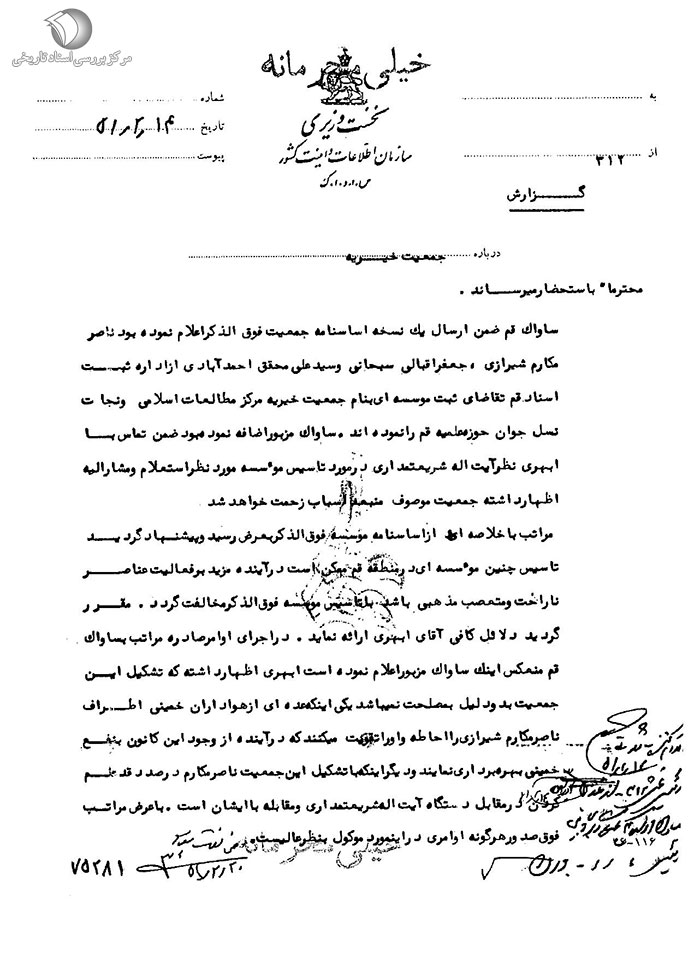 مرکز بررسی اسناد تاریخی
خیلی محرمانه
نخست وزیری
سازمان اطلاعات و امنیت کشور
س.ا.و.ا.ک
به
از ۳۱۲
شماره
تاریخ ۵۱/۲/۱۴
پیوست
گزارش
درباره جمعیت خیریه
محترماً باستحضار میرساند .
ساواک قم ضمن ارسال یک نسخه اساسنامه جمعیت فوق الذکر اعلام نموده بود ناصر
مکارم شیرازی ، جعفر اقبالی سبحانی و سیدعلی محقق احمدآبادی از اداره ثبت
اسناد قم تقاضای ثبت موسسه ای بنام جمعیت خیریه مرکز مطالعات اسلامی و نجات
نسل جوان حوزه علمیه قم را نموده اند . ساواک مزبور اضافه نموده بود ضمن تماس با
ابهری نظر آیت اله شریعتمداری در مورد تاسیس موسسه مورد نظر استعلام و مشارالیه
اظهار داشته جمعیت موصوف منبعد اسباب زحمت خواهد شد
مراتب با خلاصه ای از اساسنامه موسسه فوق الذکر بعرض رسید و پیشنهاد گردید
تاسیس چنین موسسه ای در منطقه قم ممکن است در آینده مزید بر فعالیت عناصر
ناراحت و متعصب مذهبی باشد با تاسیس موسسه فوق الذکر مخالفت گردد . مقرر
گردید دلائل کافی آقای ابهری ارائه نماید . در اجرای اوامر صادره مراتب بساواک
قم منعکس اینک ساواک مزبور اعلام نموده است ابهری اظهار داشته که تشکیل این
جمعیت بدو دلیل بمصلحت نمیباشد یکی اینکه عده ای از هواداران خمینی اطراف
ناصر مکارم شیرازی را احاطه و او را تقویت میکنند که در آینده از وجود این کانون بنفع
خمینی بهره برداری نمایند و دیگر اینکه با تشکیل این جمعیت ناصر مکارم در صدد قد علم
کردن در مقابل دستگاه آیت اله شریعتمداری و مقابله با ایشان است . با عرض مراتب
فوق صدور هرگونه اوامری در اینمورد موکول بنظر عالیست .
خیلی محرمانه
۷۵۲۸۱
۲۶-۱۱۶